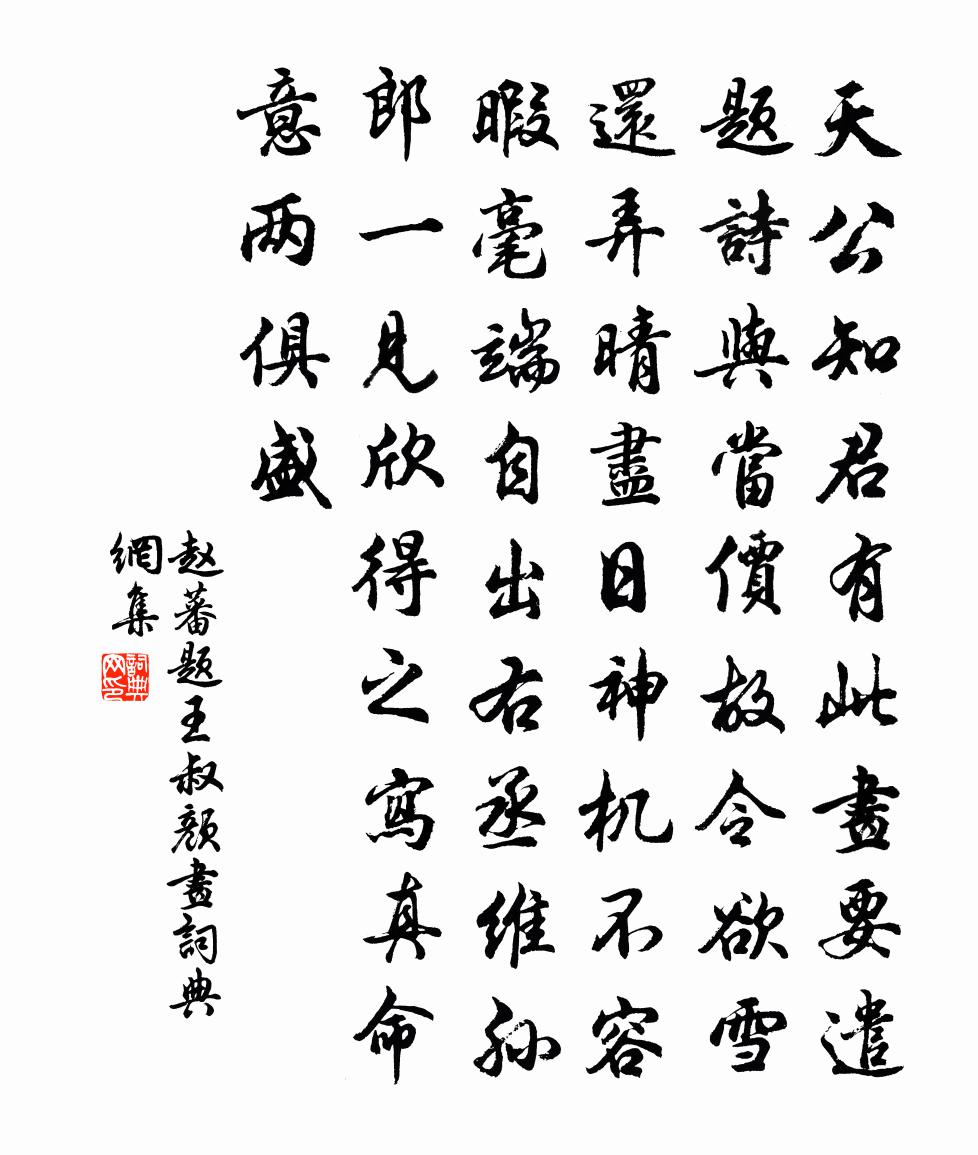 天公知君有此畫要遣
題詩與當價故令欲雪
還弄晴盡日神机不容
暇毫端自出右丞維孙
郎一見欣得之寫真命
意两俱盛
赵蕃題王叔顏畫詞典
網集
詞典
网